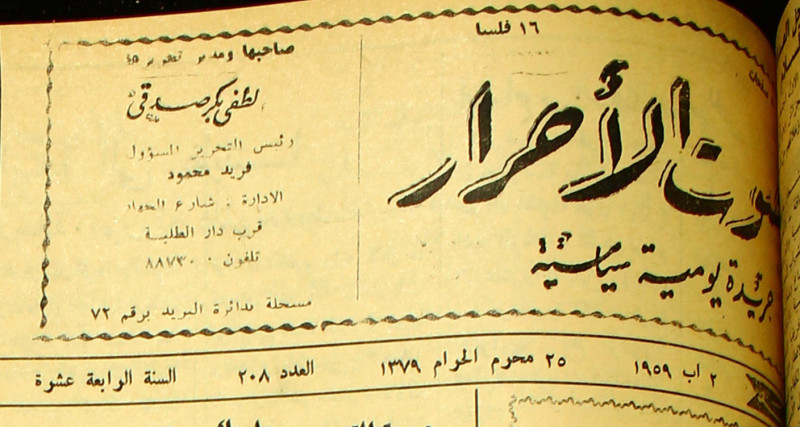 ١٦ فلسا
صوت الأحرار
جريدة يومية سياسية
صاحبها ومدير
لطفي بكر صدقي
رئيس التحرير المسؤول
فريد محمود
الادارة : شارع
قرب دار الطلبة
تلفون ٠ ٨٨٧٣٠
مسجلة بدائرة البريد برقم ٧٢
٢ اب ١٩٥٩
٢٥ محرم الحرام ١٣٧٩
العدد ٢٠٨
السنة الرابعة عشرة